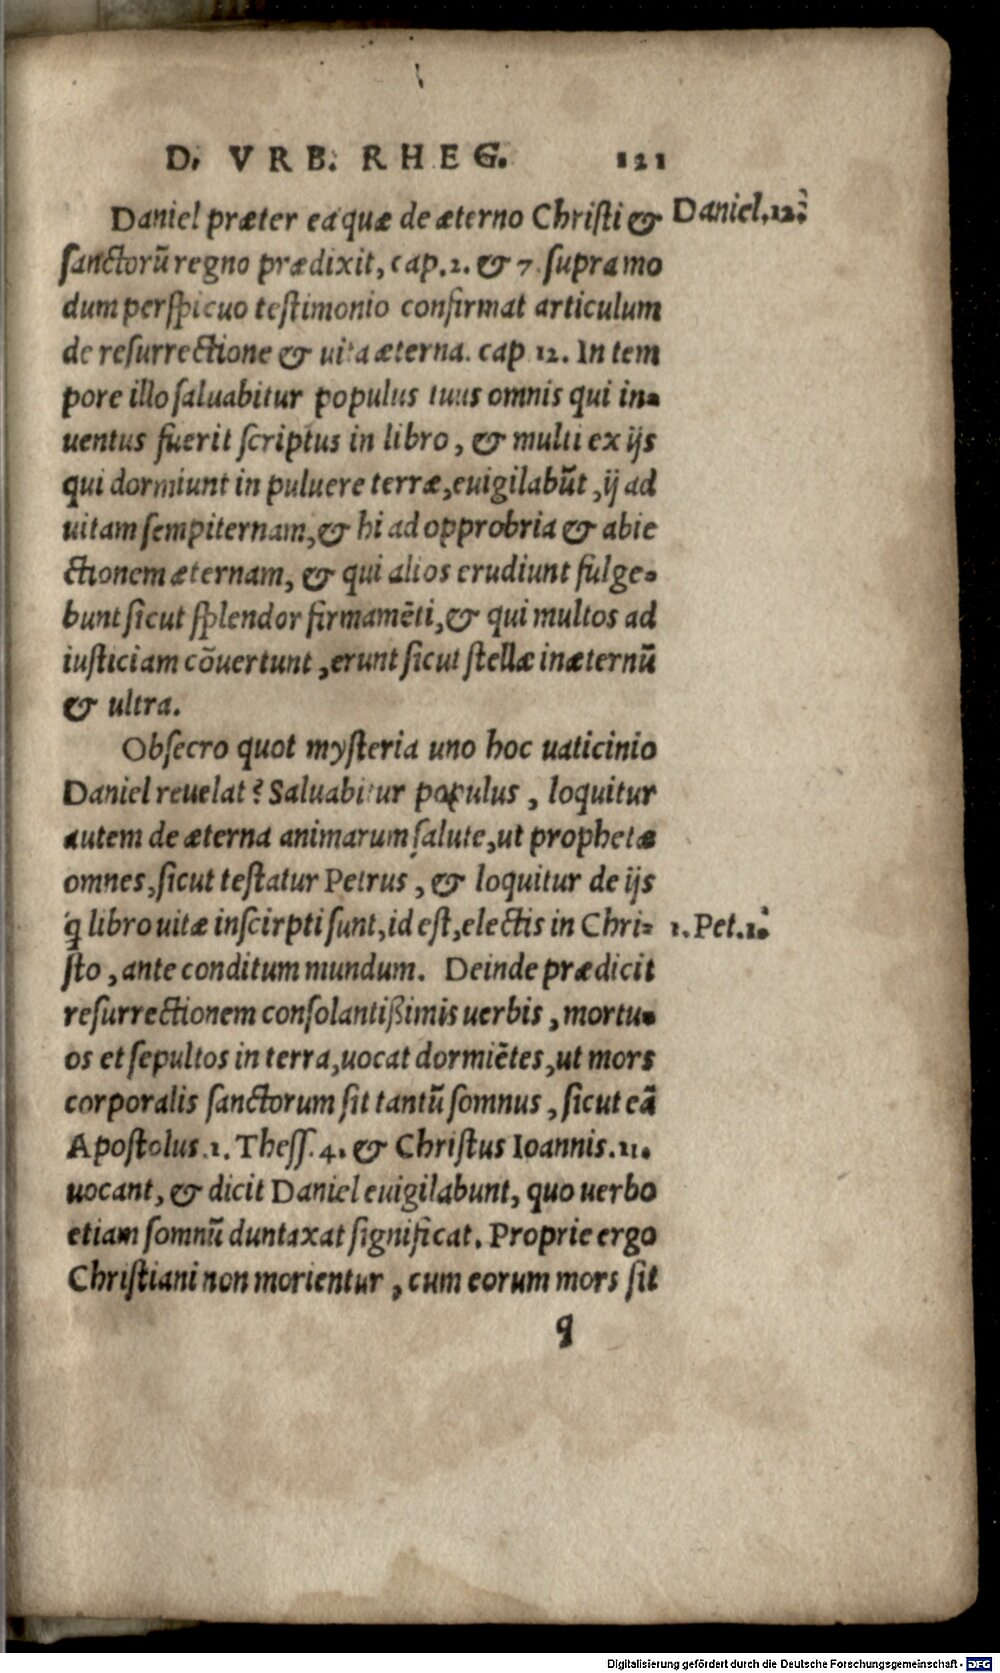 D. VRB. RHEG. 121
Daniel præter ea quæ de æterno Christi & Daniel.12.
sanctorũ regno prædixit, cap.2. & 7. supra mo
dum perspicuo testimonio confirmat articulum
de resurrectione & uita æterna. cap 12. In tem
pore illo saluabitur populus tuus omnis qui in-
uentus fuerit scriptus in libro, & multi ex ijs
qui dormiunt in puluere terræ, euigilabũt, ij ad
uitam sempiternam, & hi ad opprobria & abie
ctionem æternam, & qui alios erudiunt fulge-
bunt sicut splendor firmamẽti, & qui multos ad
iusticiam cõuertunt, erunt sicut stellæ in æternũ
& ultra.
Obsecro quot mysteria uno hoc uaticinio
Daniel reuelat? Saluabitur populus, loquitur
autem de æterna animarum salute, ut prophetæ
omnes, sicut testatur Petrus, & loquitur de ijs
q̃ libro uitæ inscirpti sunt, id est, electis in Chri- 1. Pet.1.
sto, ante conditum mundum. Deinde prædicit
resurrectionem consolantißimis uerbis, mortu-
os et sepultos in terra, uocat dormiẽtes, ut mors
corporalis sanctorum sit tantũ somnus, sicut eã
Apostolus.1. Thess.4. & Christus Ioannis.11.
uocant, & dicit Daniel euigilabunt, quo uerbo
etiam somnũ duntaxat significat. Proprie ergo
Christiani non morientur, cum eorum mors sit
q
Digitalisierung gefördert durch die Deutsche Forschungsgemeinschaft - DFG